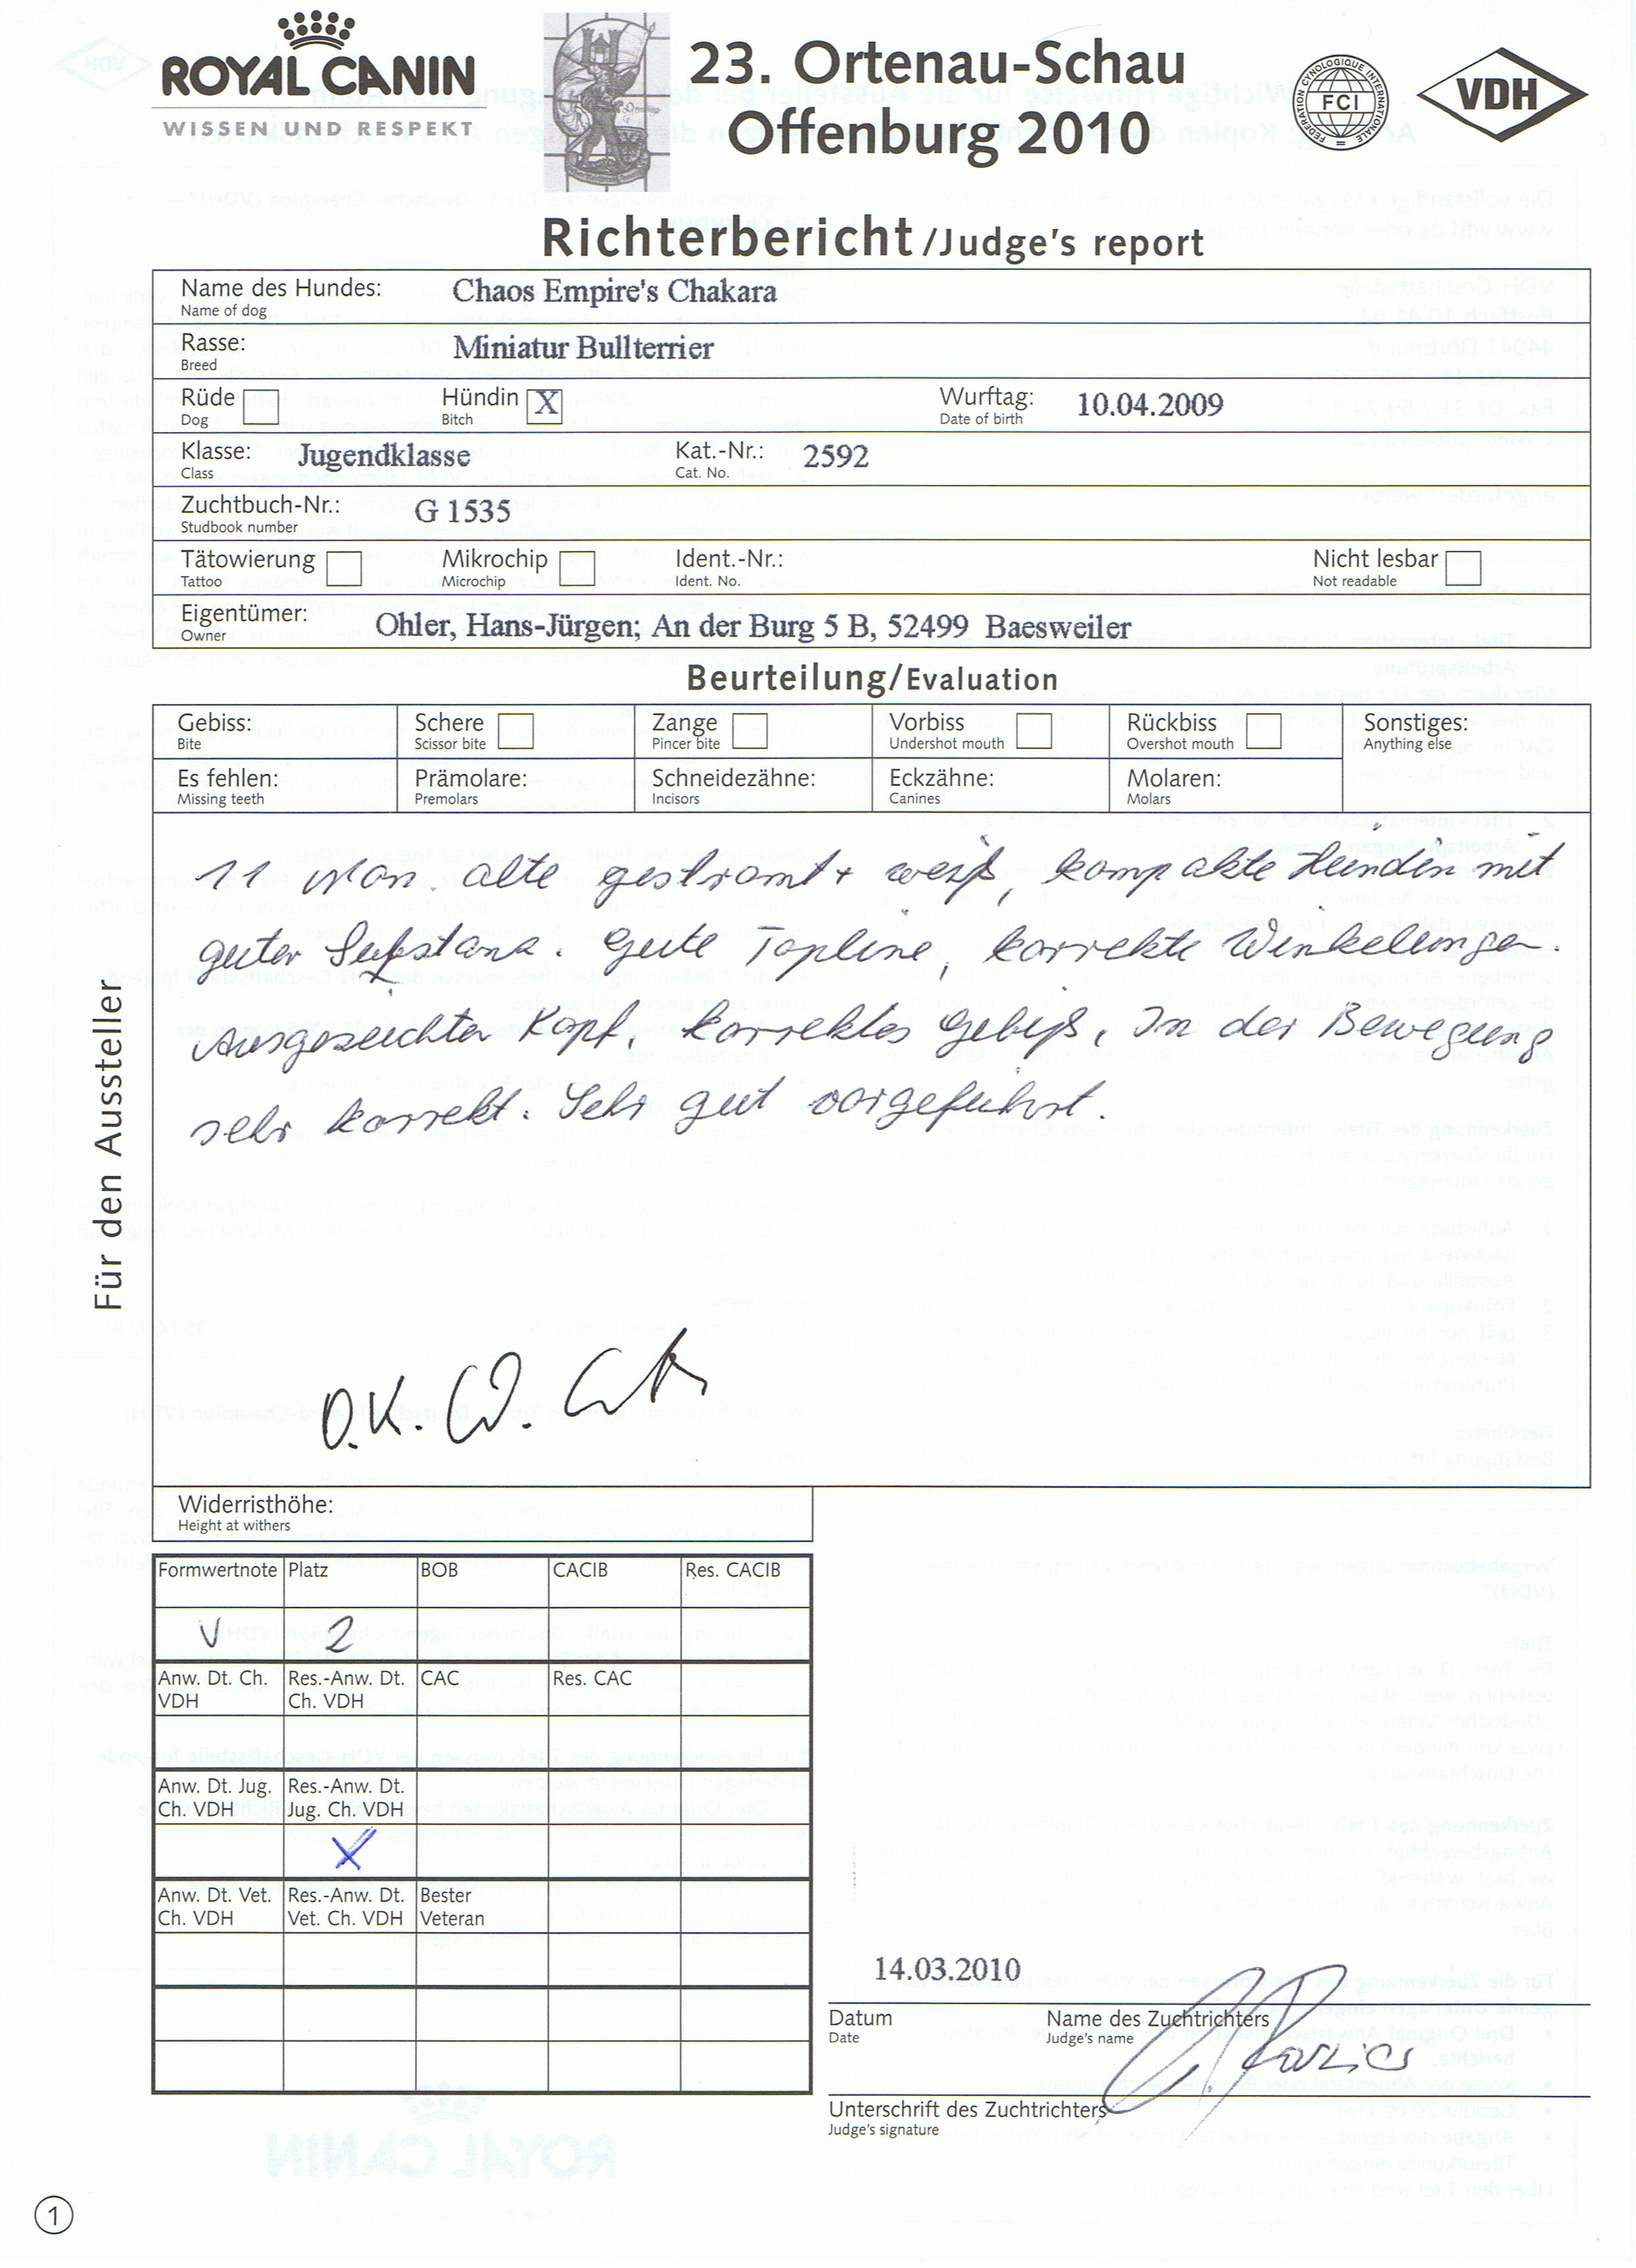 ROYAL CANIN
WISSEN UND RESPEKT
23. Ortenau-Schau
Offenburg 2010
FEDERATION CYNOLOGIQUE INTERNATIONALE
FCI
VDH
Richterbericht/Judge's report
Name des Hundes: Chaos Empire's Chakara
Name of dog
Rasse: Miniatur Bullterrier
Breed
Rüde Hündin X Wurftag: 10.04.2009
Dog Bitch Date of birth
Klasse: Jugendklasse Kat.-Nr.: 2592
Class Cat. No.
Zuchtbuch-Nr.: G 1535
Studbook number
Tätowierung Mikrochip Ident.-Nr.: Nicht lesbar
Tattoo Microchip Ident. No. Not readable
Eigentümer: Ohler, Hans-Jürgen; An der Burg 5 B, 52499 Baesweiler
Owner
Beurteilung/Evaluation
Gebiss: Schere Zange Vorbiss Rückbiss Sonstiges:
Bite Scissor bite Pincer bite Undershot mouth Overshot mouth Anything else
Es fehlen: Prämolare: Schneidezähne: Eckzähne: Molaren:
Missing teeth Premolars Incisors Canines Molars
Für den Aussteller
11 Mon. alte gestromt + weiß, kompakte Hündin mit
guter Substanz. Gute Topline, korrekte Winkelungen.
Ausgezeichter Kopf, korrektes Gebiß. In der Bewegung
sehr korrekt. Sehr gut vorgeführt.
O.K.
Widerristhöhe:
Height at withers
Formwertnote Platz BOB CACIB Res. CACIB
V 2
Anw. Dt. Ch. Res.-Anw. Dt. CAC Res. CAC
VDH Ch. VDH
Anw. Dt. Jug. Res.-Anw. Dt.
Ch. VDH Jug. Ch. VDH
X
Anw. Dt. Vet. Res.-Anw. Dt. Bester
Ch. VDH Vet. Ch. VDH Veteran
14.03.2010
Datum Name des Zuchtrichters
Date Judge's name
Unterschrift des Zuchtrichters
Judge's signature
1